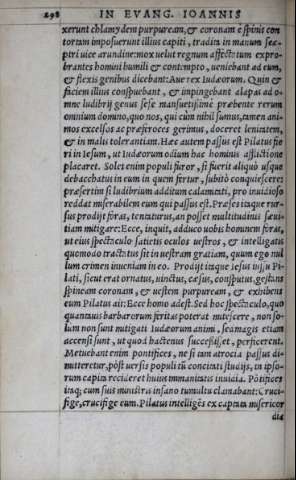 298 IN EVANG. IOANNIS
xerunt chlamydem purpuream, & coronam è spinis con
tortam imposuerunt illius capiti, tradita in manum sce-
ptri uice arundine: mox uelut regnum affectatum expro-
brantes homini humili & contempto, ueniebant ad eum,
& flexis genibus dicebant: Aue rex Iudæorum. Quin &
faciem illius conspuebant, & impingebant alapas ad o-
mne ludibrij genus sese mansuetissimè præbente rerum
omnium domino, quo nos, qui cùm nihil sumus, tamen ani-
mos excelsos ac præferoces gerimus, doceret lenitatem,
& in malis tolerantiam. Hæc autem passus est Pilatus fie
ri in Iesum, ut Iudæorum odium hac hominis afflictione
placaret. Solet enim populi furor, si fuerit aliquò usque
debacchatus in eum in quem fertur, subitò conquiescere:
præsertim si ludibrium additum calamitati, pro inuidioso
reddat miserabilem eum qui passus est. Præses itaque rur-
sus prodijt foràs, tentaturus, an posset multitudinis sæui-
tiam mitigare: Ecce, inquit, adduco uobis hominem foràs,
ut eius spectaculo satietis oculos uestros, & intelligatis
quomodo tractatus sit in uestram gratiam, quum ego nul
lum crimen inueniam in eo. Prodijt itaque Iesus iussu Pi-
lati, sicut erat ornatus, uinctus, cæsus, consputus, gestans
spineam coronam, & uestem purpuream, & exhibens
eum Pilatus ait: Ecce homo adest. Sed hoc spectaculo, quo
quantauis barbarorum feritas poterat mitescere, non so-
lum non sunt mitigati Iudæorum animi, sed magis etiam
accensi sunt, ut quod hactenus successit, & perficerent.
Metuebant enim pontifices, ne si tam atrocia passus di-
mitteretur, pòst uersis populi in concitati studijs, in ipso-
rum capita recideret huius immanitatis inuidia. Pōtifices
itaq; cum suis ministris insano tumultu clamabant: Cruci-
fige, crucifige eum. Pilatus intelligēs ex captata misericor
dia